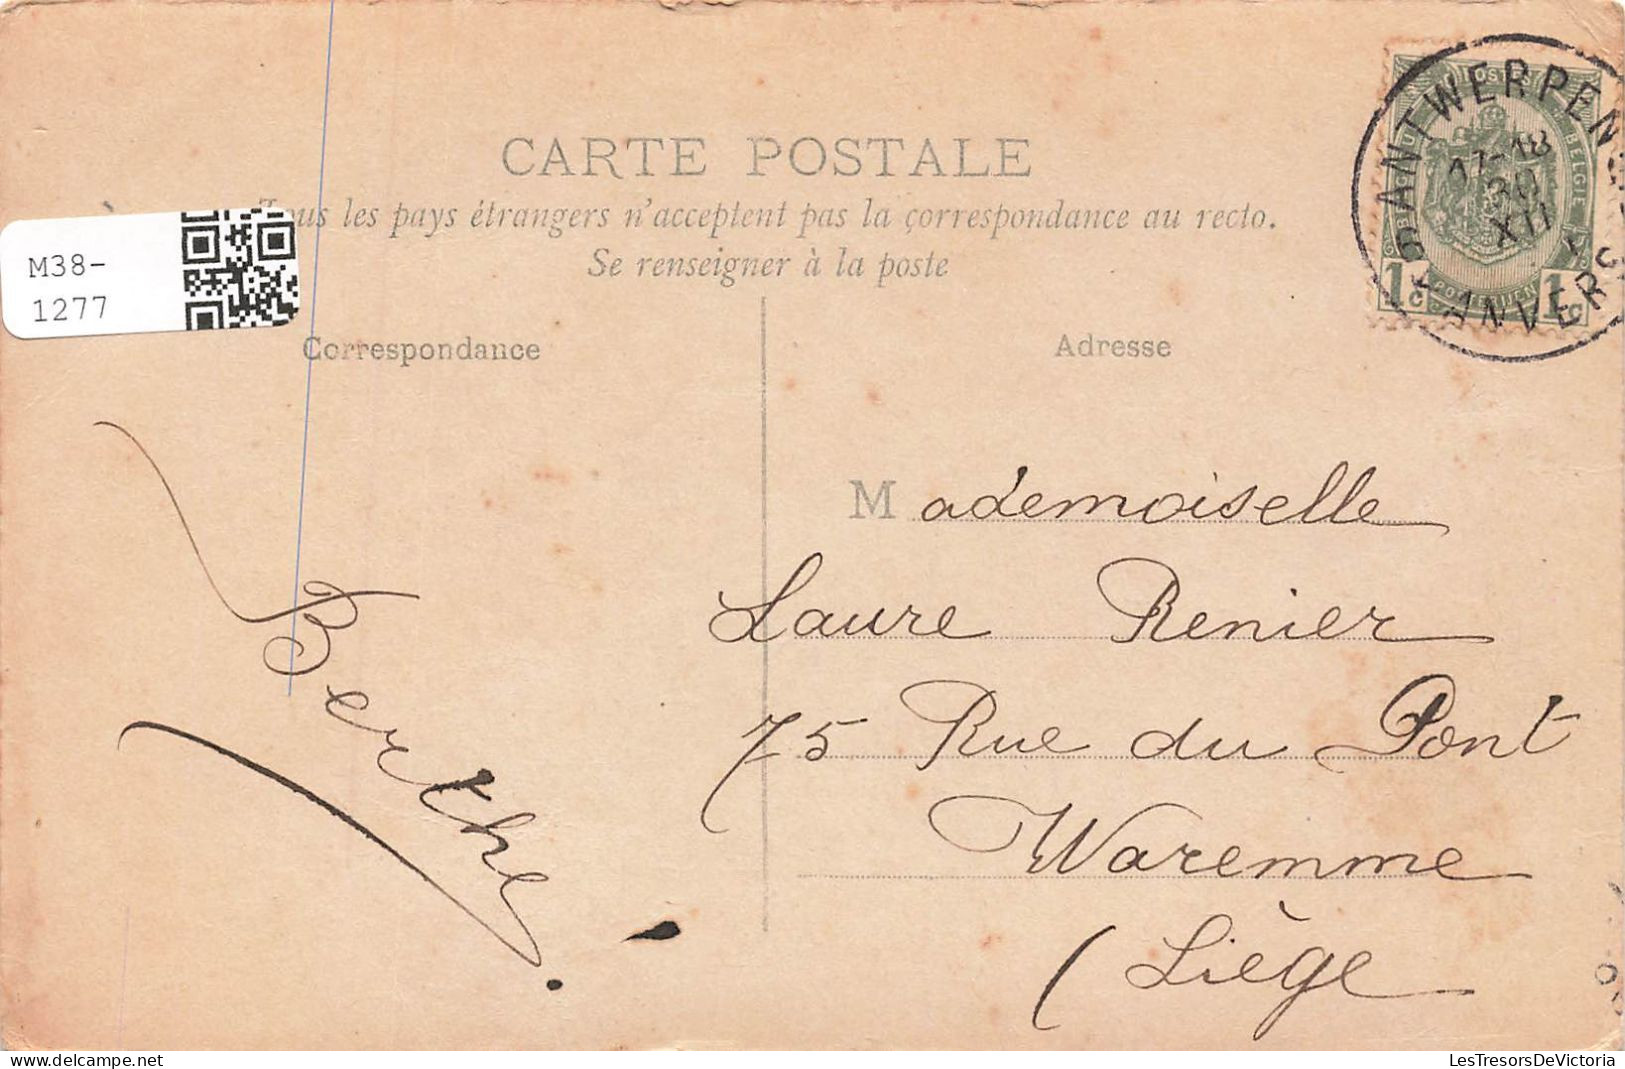 CARTE POSTALE
Tous les pays étrangers n'acceptent pas la correspondance au recto.
Se renseigner à la poste
M38-
1277
Correspondance
Adresse
ANTWERPEN
17-18
30
XII
ANVERS
POSTES
BELGIE
POSTERIJEN
1c
1c
Mademoiselle
Laure Renier
75 Rue du Pont
Waremme
(Liège
Berthe.
LesTresorsDeVictoria
delcampe.net